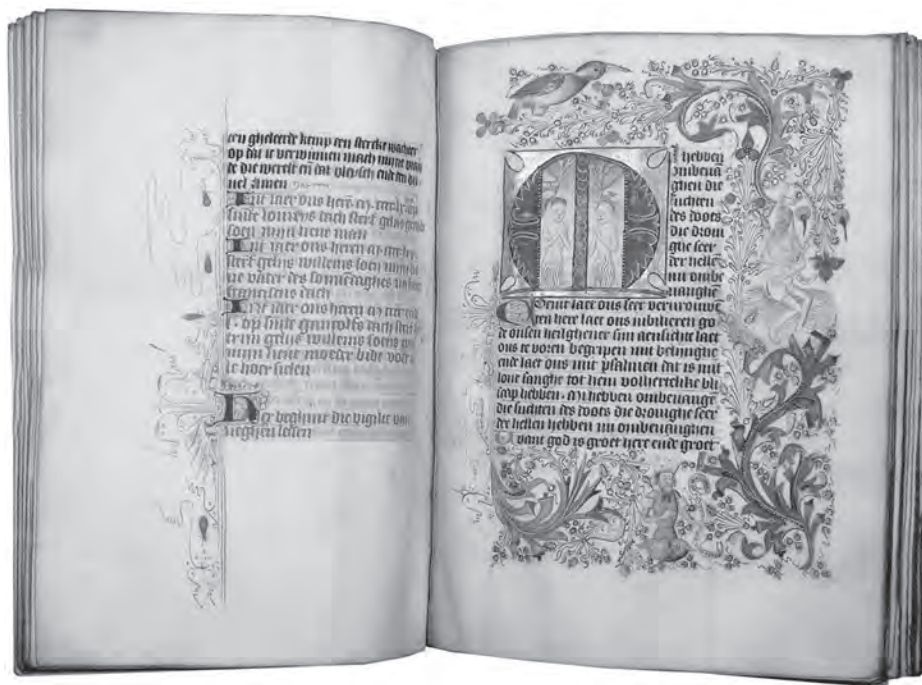 een ghetrerde kemp een sterke wachter
op dat ic verwinnen mach mine viande
te die werelt eñ dat vleysch ende den dui
uel Amen
Int iaer ons herē
sinte louwerijs dach sterf gelijs
soen mijn heue man
Int iaer ons heren
sterf gelijs willems soen mijn
ue vader des sonnēdaghes na sinte
franciscus dach
Int iaer ons heren
op sinte dach sterf
gelijs willems soens wijf
mijn heue moeder bidt voer
te hoer sielen
Hier beghint die vigilie van
neghen lessen
Mi hebben
ombeuā
ghen die
suchten
des doots
die droui
ghe seer
der hellen
mi ombe
uanghē
Comt laet ons seer verurouwe
den here laet ons iubilieren go
de onsen heilgheuer sijn aensichte laet
ons te voren begripen mit belyinghe
ende laet ons mit psalmen dat is mit
loue sanghe tot hem volhertelike bli
scap hebben. Mi hebben ombeuange
die suchten des doots die drouighe seer
der hellen hebben mi ombeuanghen
Want god is groet here ende groet